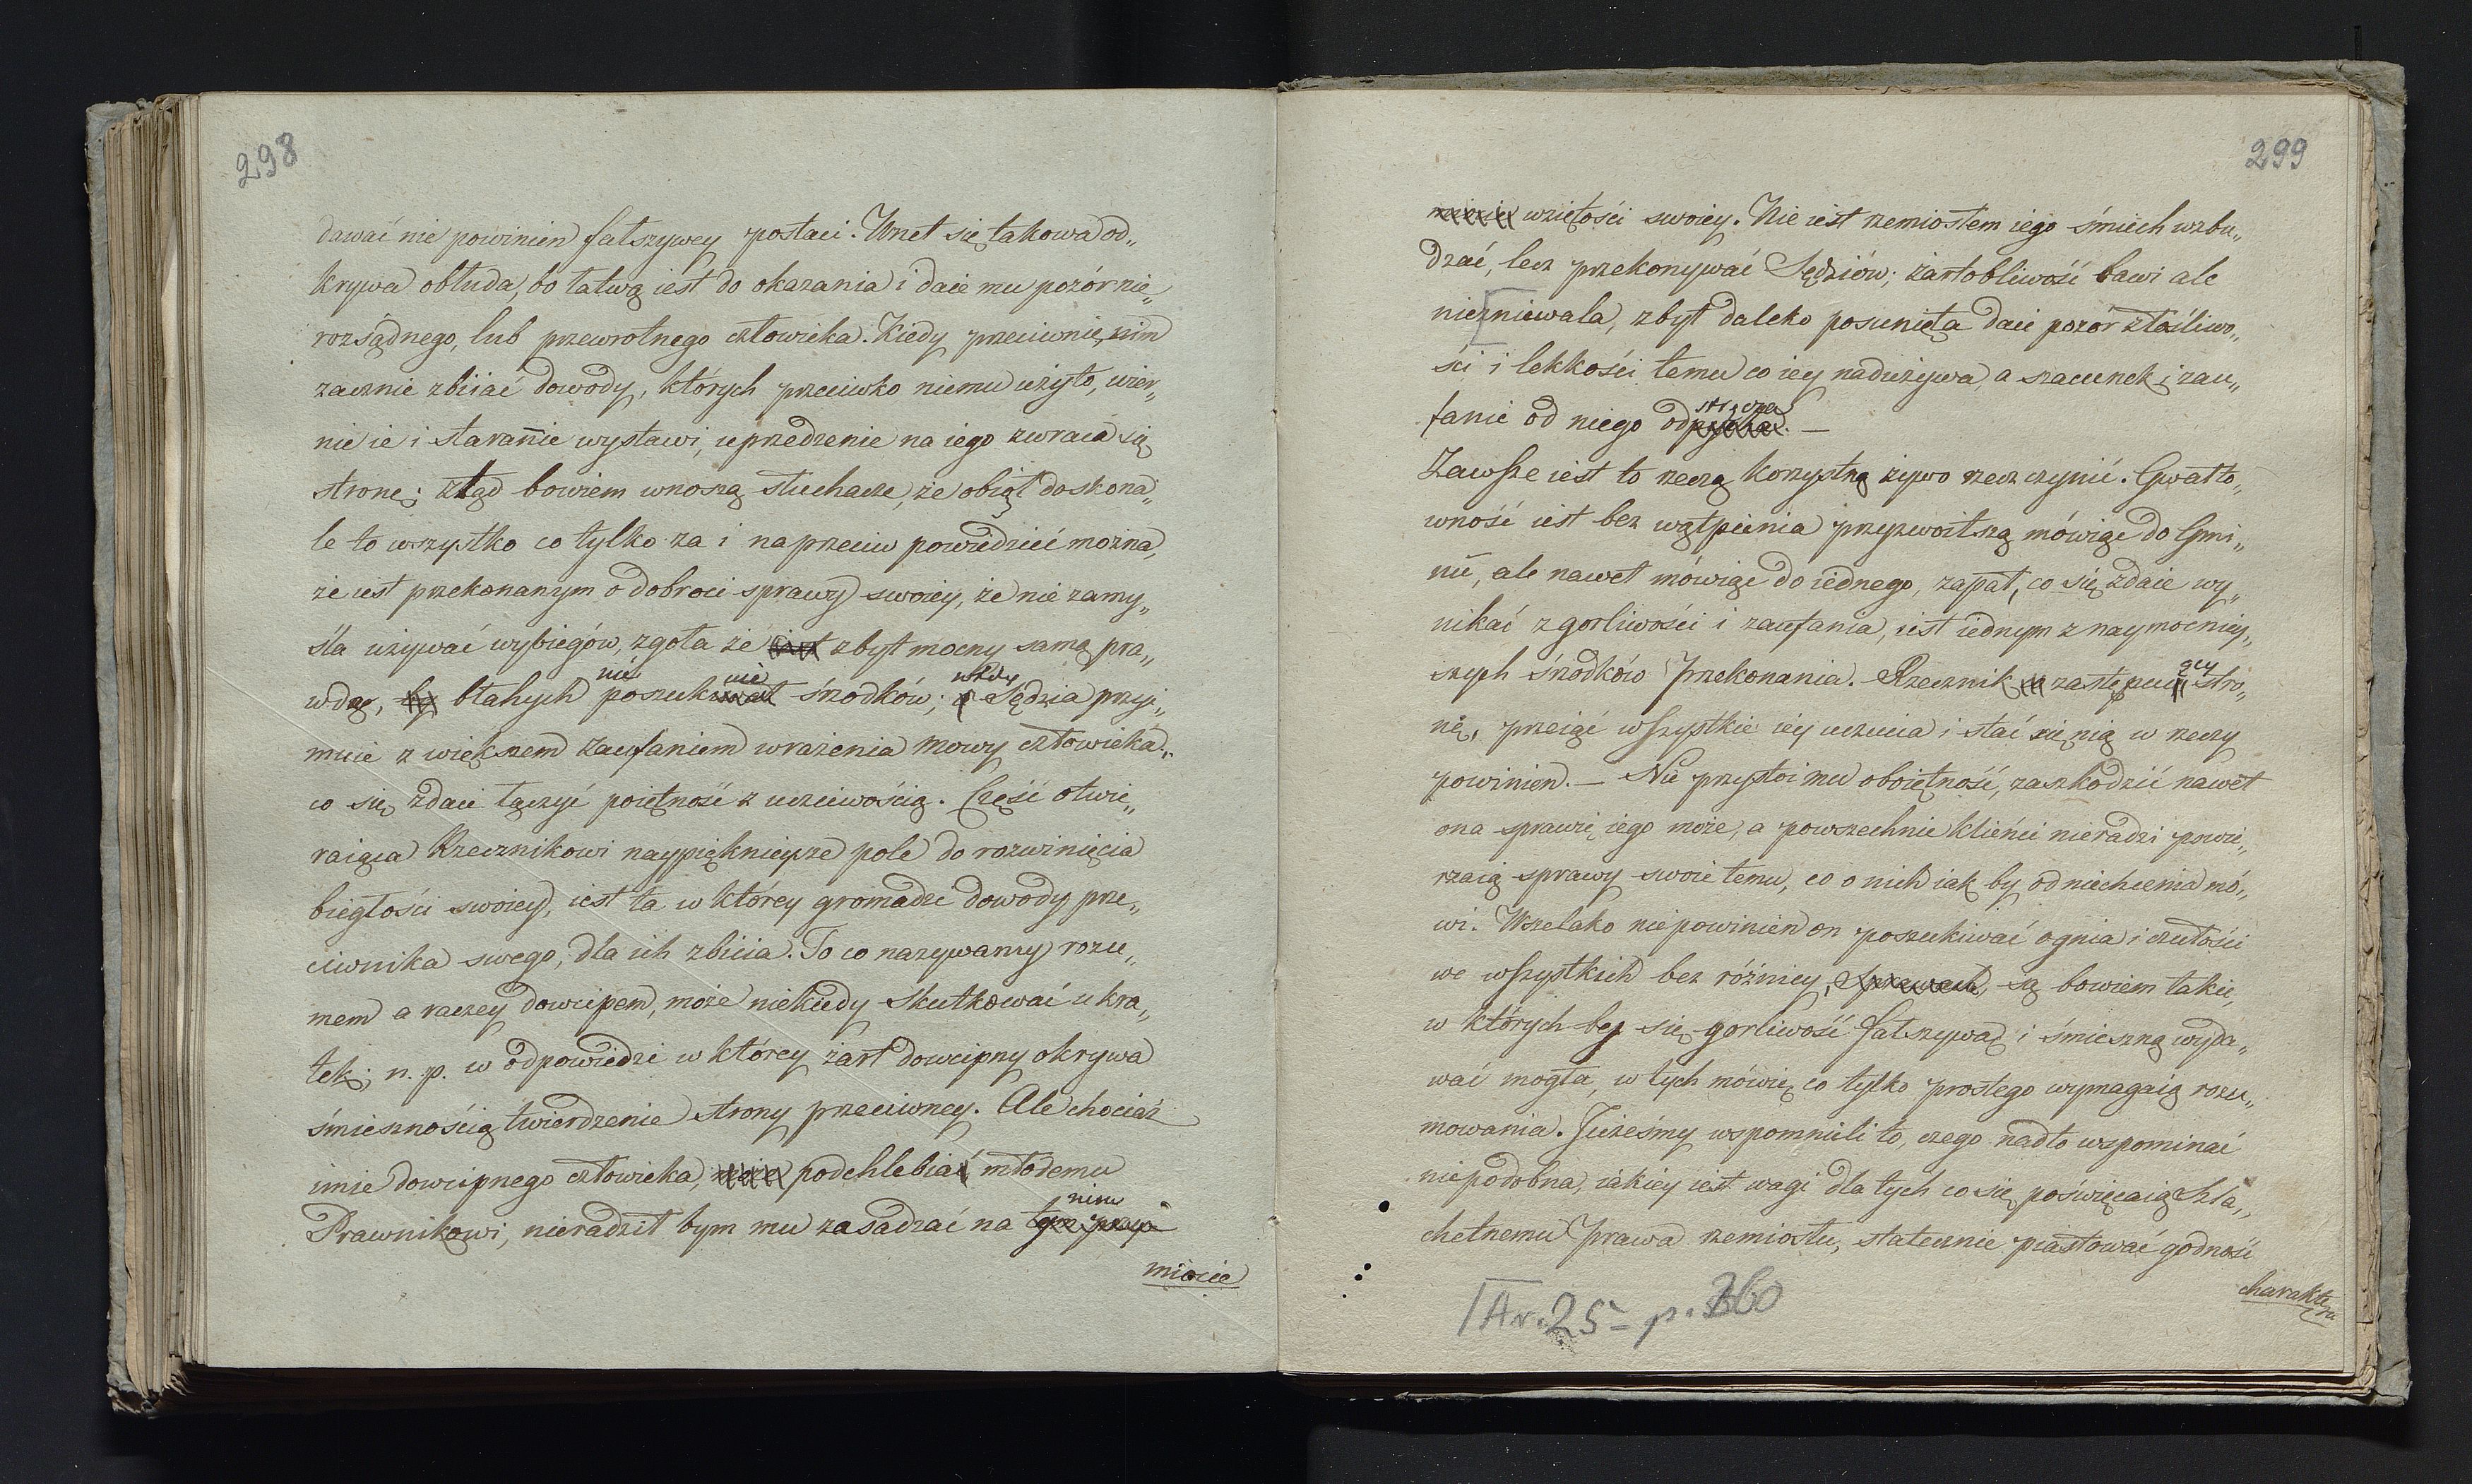 298
dawać nie powinien fałszywey postaci. Wnet się takowa od„
krywa obłuda, bo łatwą iest do okazania i daie mu pozór nie„
rozsądnego, lub przewrotnego człowieka. Kiedy przeciwnie, nim
zacznie zbiiać dowody, których przeciwko niemu użyto, wier„
nie ie i starannie wystawi, uprzedzenie na iego zwraca się
stronę; ztąd bowiem wnoszą słuchacze, że obiął doskona„
le to wszystko co tylko za i naprzeciw powiedzieć można,
że iest przekonanym o dobroci sprawy swoiey, że nie zamy„
śla używać wybiegów, zgoła że iest zbyt mocny samą pra„
wdą, by błahych nie poszukiwał nie środków; a wtedy Sędzia przyi„
muie z większem zaufaniem wrażenia mowy człowieka„
co się zdaie łączyć poiętność z uczciwością. Część otwie„
raiąca Rzecznikowi naypięknieysze pole do rozwinięcia
biegłości swoiey, iest ta w którey gromadzi dowody prze„
ciwnika swego, dla ich zbicia. To co nazywamy rozu„
mem a raczey dowcipem, może niekiedy skutkować ukra„
tek; n. p. w odpowiedzi w którey żart dowcipny okrywa
śmiesznością twierdzenie strony przeciwney. Ale chociaż
imie dowcipnego człowieka, może podchlebiać młodemu
Prawnikowi, nieradził bym mu zasadzać na tym przy nim
miocie
299
miocie wziętości swoiey. Nie iest rzemiosłem iego śmiech wzbu„
dzać, lecz przekonywać Sędziów; żartobliwość bawi ale
niezniewala, zbyt daleko posunięta daie pozór złośliwo„
ści i lekkości temu co iey nadużywa, a szacunek i zau„
fanie od niego odpycha. stręcza —
Zawsze iest to rzeczą korzystną żywo rzecz czynić. Gwałto„
wność iest bez wątpienia przyzwoitszą mówiąc do Gmi„
nu, ale nawet mówiąc do iednego, zapał, co się zdaie wy„
nikać z gorliwości i zaufania, iest iednym z naymocniey„
szych środków Przekonania. Rzecznik zastępuiący stro„
nę, przeiąć wszystkie iey uczucia i stać się nią w rzeczy
powinien. — Nie przystoi mu oboiętność, zaszkodzić nawet
ona sprawie iego może, a powszechnie klienci nieradzi powie„
rzaią sprawy swoie temu, co o nich iak by od niechcenia mó„
wi. Wszelako niepowinien on poszukiwać ognia i czułości
we wszystkich bez różnicy, sprawach, są bowiem takie,
w których by się gorliwość fałszywą i śmieszną wyda„
wać mogła, w tych mówię co tylko prostego wymagaią rozu„
mowania. Jużeśmy wspomnieli to, czego nadto wspominać
niepodobna, iakiey iest wagi dla tych co się poświęcaią szla„
chetnemu Prawa rzemiosłu, statecznie piastować godność
charakteru
Ar. 25 – p. 360